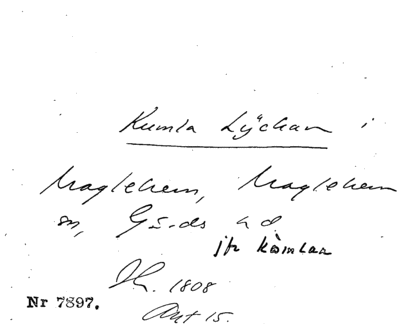 Kumla Lÿckan i
Maglehem, Maglehem
sn, Gärds hd.
jfr kömlan
1808
Nr 7897.
Akt 15.